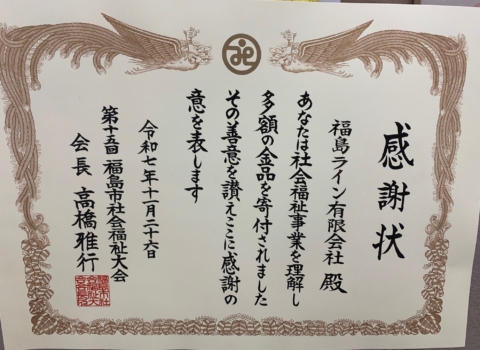 感謝状
福島ライン有限会社 殿
あなたは社会福祉事業を理解し
多額の金品を寄付されました
その善意を讃えここに感謝の
意を表します
令和七年十一月二十六日
第十五回 福島市社会福祉大会
会長 高橋雅行